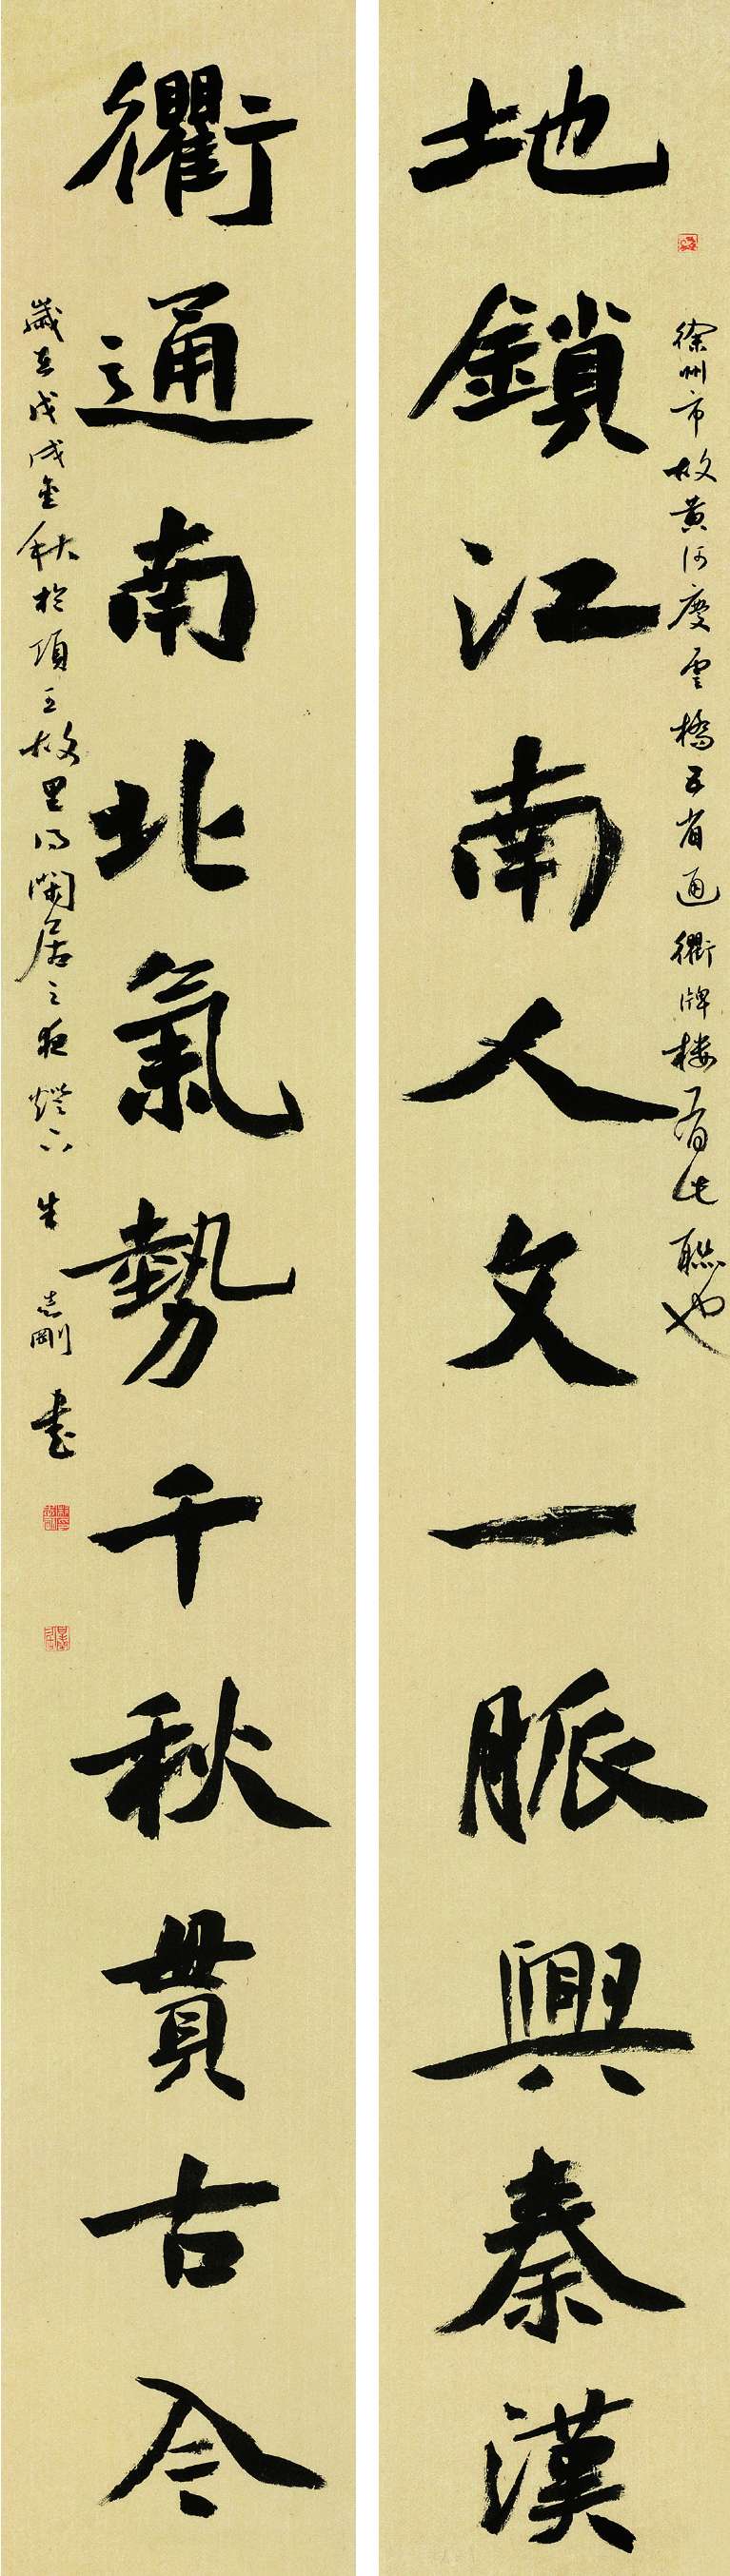 地鎖江南人文一脈興秦漢
徐州市故黃河慶雲橋五省通衢牌楼有此聯也
衢通南北氣勢千秋貫古今
歲在戊戌金秋於項王故里得閑居之夜燈下 朱 志剛 書